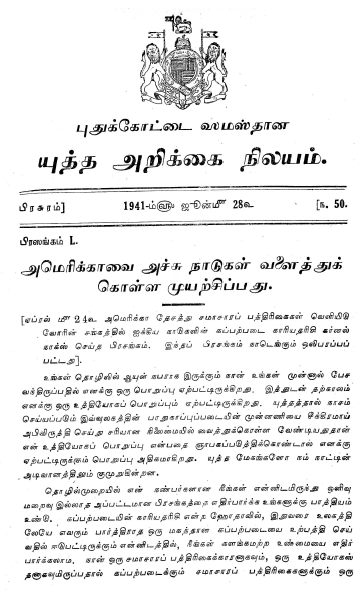 புதுக்கோட்டை ஸமஸ்தான
யுத்த அறிக்கை நிலயம்.
பிரசுரம்] 1941-ம்௵ ஜூன்௴ 28௳ [ந. 50.
பிரஸங்கம் L.
அமெரிக்காவை அச்சு நாடுகள் வளைத்துக்
கொள்ள முயற்சிப்பது.
[ஏப்ரல் ௴ 24௳ அமெரிக்கா தேசத்து சமாசாரப் பத்திரிகைகள் வெளியிடு
வோரின் சங்கத்தில் ஐக்கிய நாடுகளின் கப்பற்படை காரியதரிசி கர்னல்
நாக்ஸ் செய்த பிரசங்கம். இந்தப் பிரசங்கம் நாடெங்கும் ஒலிபரப்பப்
பட்டது].
உங்கள் தொழிலில் ஆயுள் நபராக இருக்கும் நான் உங்கள் முன்னால் பேச
வந்திருப்பதில் எனக்கு ஒரு பொறுப்பு ஏற்பட்டிருக்கிறது. இத்துடன் தற்காலம்
எனக்கு ஒரு உத்தியோகப் பொறுப்பும் ஏற்பட்டிருக்கிறது. யுத்தத்தால் நாசம்
செய்யப்படும் இவ்வுலகத்தின் பாதுகாப்புப்படையின் முன்னணியை சீக்கிரமாய்
அபிவிருத்தி செய்து சரியான நிலைமையில் வைத்துக்கொள்ள வேண்டியதுதான்
என் உத்தியோகப் பொறுப்பு என்பதை ஞாபகப்படுத்திக்கொண்டால் எனக்கு
ஏற்பட்டிருக்கும் பொறுப்பு அதிகமாகிறது. யுத்த மேகங்களோ நம் நாட்டின்
அடிவானத்திலும் குமுறுகின்றன.
தொழில்முறையில் என் நண்பர்களான நீங்கள் என்னிடமிருந்து ஒளிவு
மறைவு இல்லாத அப்பட்டமான பிரசங்கத்தை எதிர்பார்க்க உங்களுக்கு பாத்தியம்
உண்டு. கப்பற்படையின் காரியதரிசி என்ற ஹோதாவில், இதுவரை உலகத்தி
லேயே எவரும் பார்த்திராத ஒரு மகத்தான கப்பற்படையை உற்பத்தி செய்
வதில் ஈடுபட்டிருக்கும் என்னிடத்தில், நீங்கள் களங்கமற்ற உண்மையை எதிர்
பார்க்கலாம். நான் ஒரு சமாசாரப் பத்திரிகைக்காரனாகவும், ஒரு உத்தியோகஸ்
தனாகவுமிருப்பதால் கப்பற்படைக்கும் சமாசாரப் பத்திரிகைகளுக்கும் ஒரு